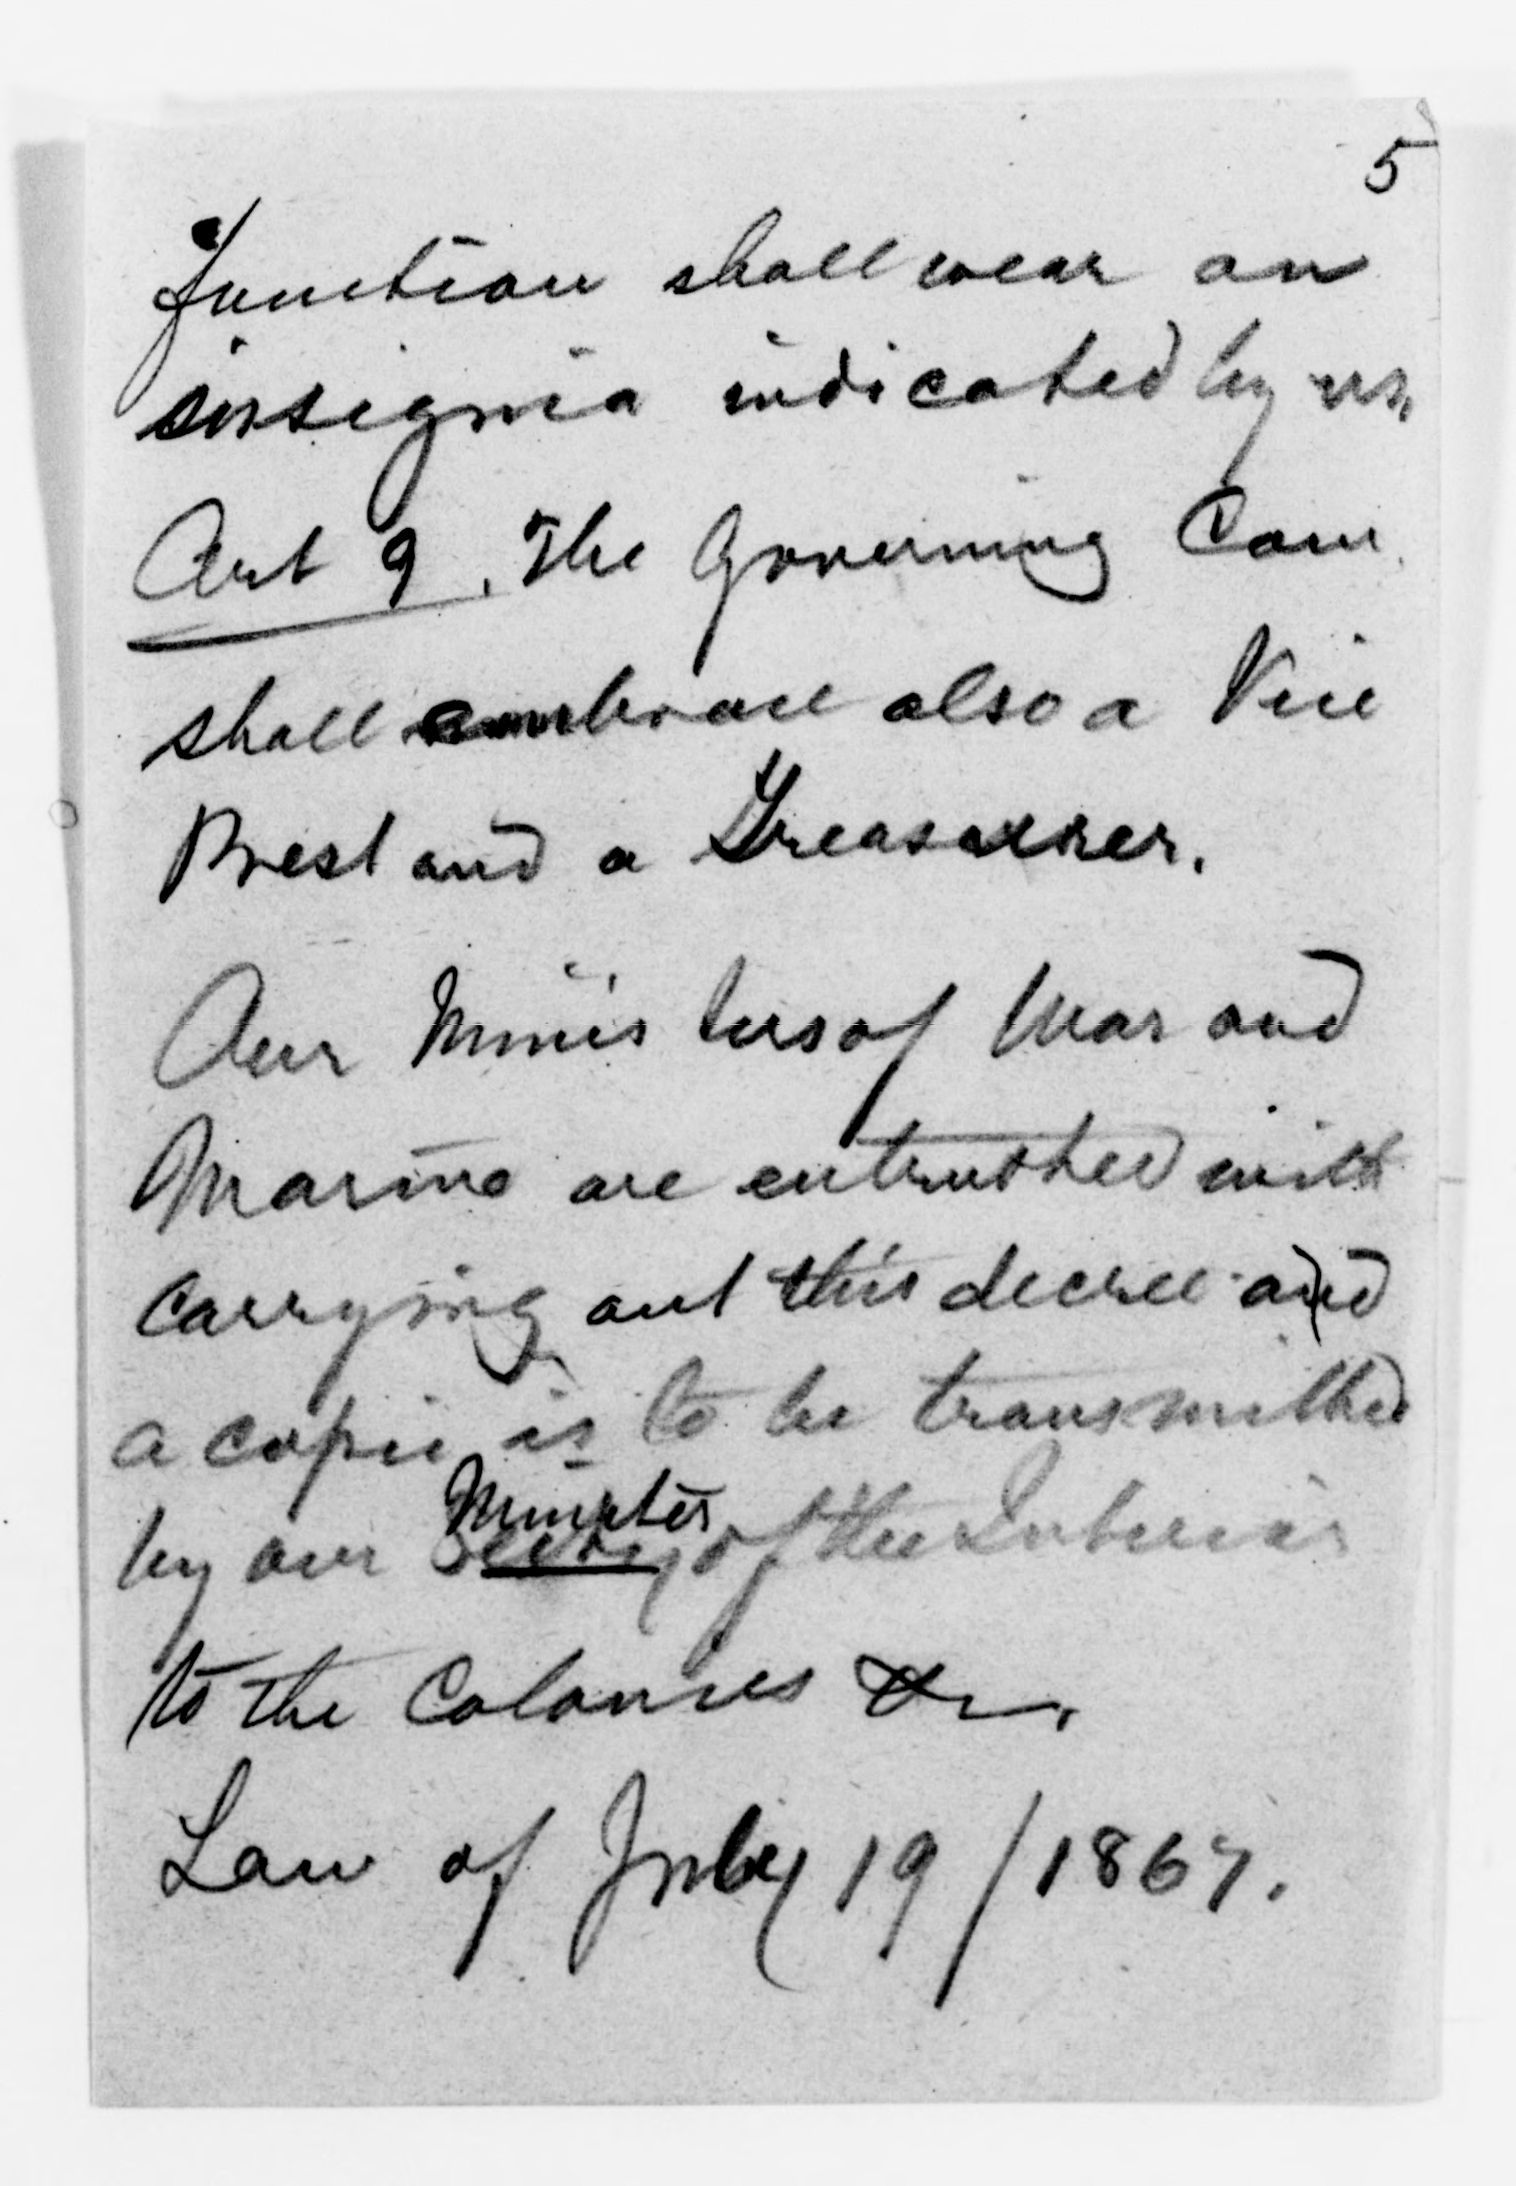 5
function shall wear an
insignia indicated by us.
Art 9. The Governing Com.
shall embrace also a Vice
Prest and a Treasurer.
Our Ministers of War and
Marine are entrusted with
carrying out this decree and
a copie is to be transmitted
Minister
by our Secty of the Interior
to the Colonies &c.
Law of July 19/1867.